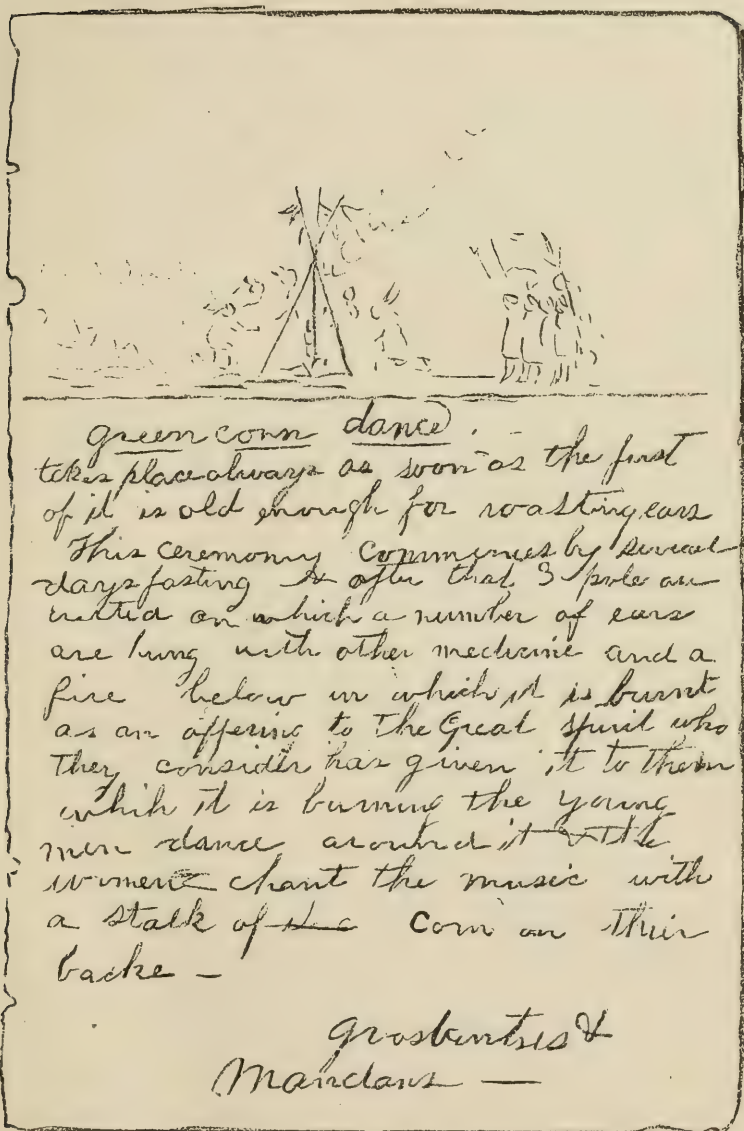 green corn dance.
takes place always as soon as the first
of it is old enough for roasting ears
This ceremony commences by several
days fasting & after that 3 pole are
erected on which a number of ears
are hung with other medicine and a
fire below in which it is burnt
as an offering to the Great Spirit who
they consider has given it to them
which it is burning the young
men dance around it & the
women chant the music with
a stalk of Corn on their
backe —
Grosbentres &
Mandans —